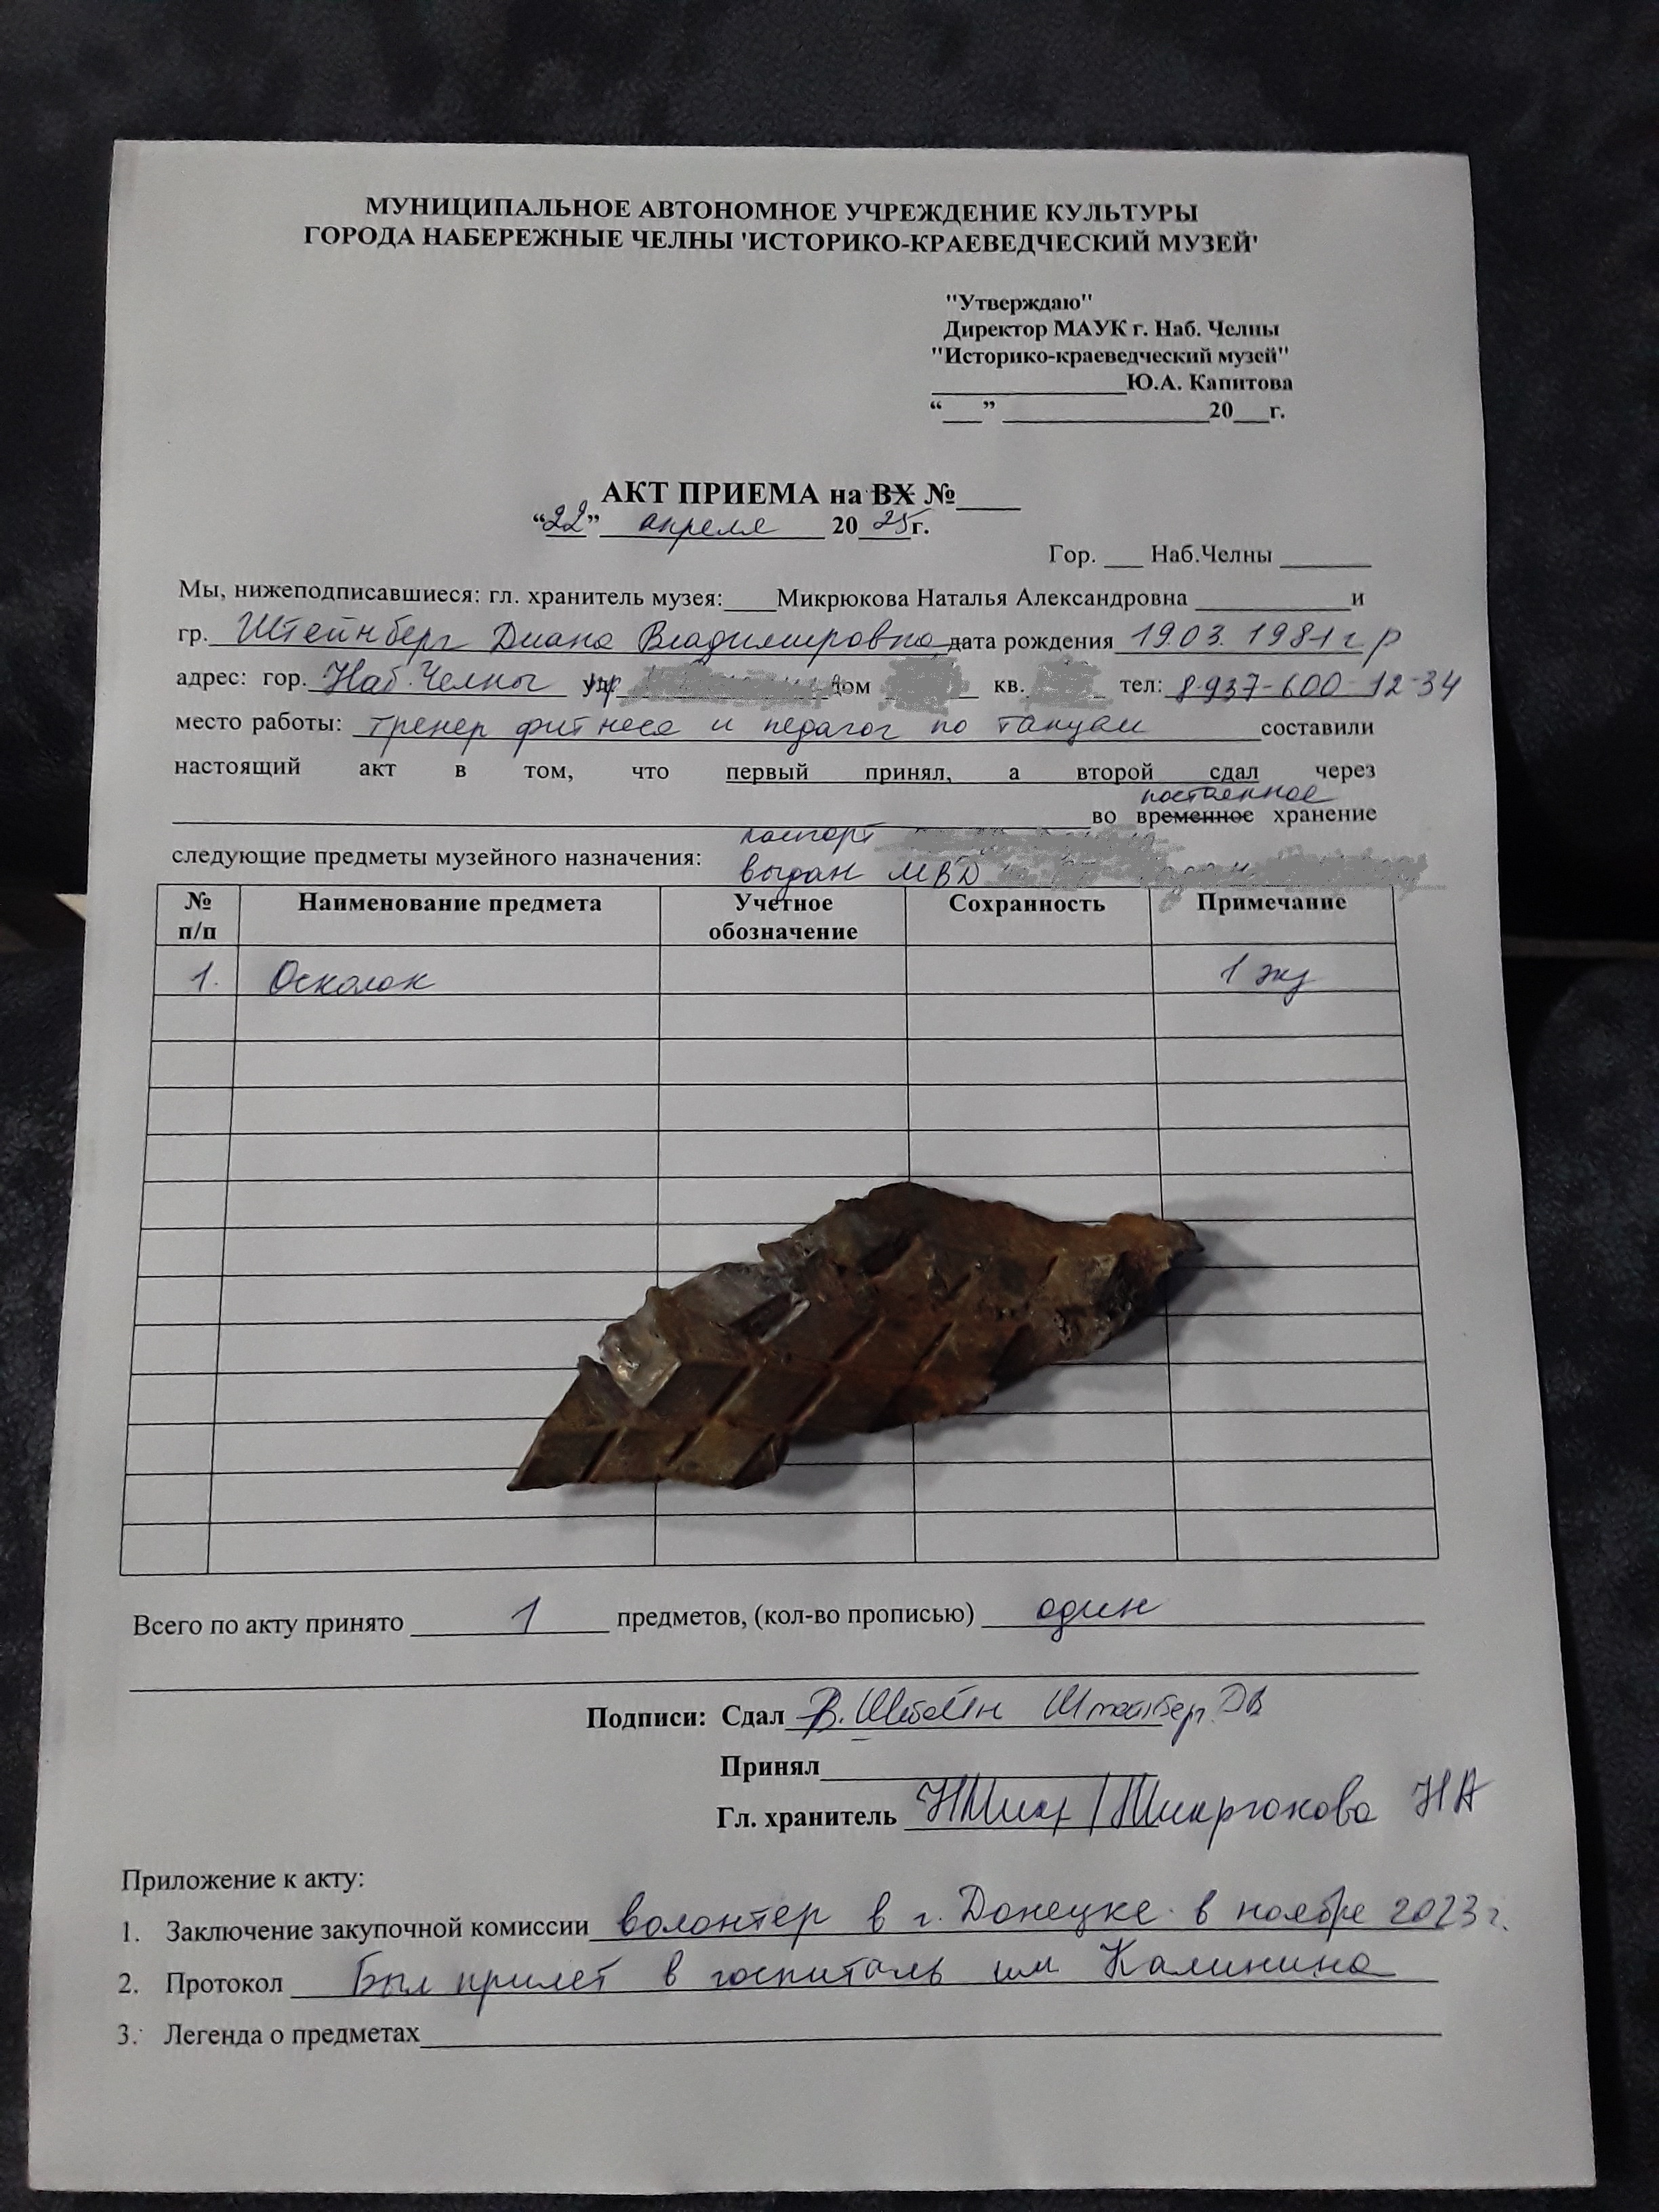 МУНИЦИПАЛЬНОЕ АВТОНОМНОЕ УЧРЕЖДЕНИЕ КУЛЬТУРЫ
ГОРОДА НАБЕРЕЖНЫЕ ЧЕЛНЫ 'ИСТОРИКО-КРАЕВЕДЧЕСКИЙ МУЗЕЙ'
"Утверждаю"
Директор МАУК г. Наб. Челны
"Историко-краеведческий музей"
______________Ю.А. Капитова
“___” ________________20___г.
АКТ ПРИЕМА на ВХ №____
“22” апреля 2025г.
Гор. ___ Наб.Челны _______
Мы, нижеподписавшиеся: гл. хранитель музея:____Микрюкова Наталья Александровна ____________и
гр. Штейнберг Диана Владимировна дата рождения 19.03.1981 г р
адрес: гор. Наб.Челны дом кв. тел: 8-937-600-12-34
место работы: тренер фитнеса и педагог по танцам составили
настоящий акт в том, что первый принял, а второй сдал через
постоянное
во временное хранение
паспорт
следующие предметы музейного назначения: выдан МВД
№ п/п Наименование предмета Учетное обозначение Сохранность Примечание
1. Осколок 1 экз
Всего по акту принято 1 предметов, (кол-во прописью) один
Подписи: Сдал Штейнберг ДВ
Принял
Гл. хранитель НМик / Микрюкова НА
Приложение к акту:
1. Заключение закупочной комиссии волонтер в г. Донецке в ноябре 2023 г.
2. Протокол Был прилет в госпиталь им Калинина
3. Легенда о предметах